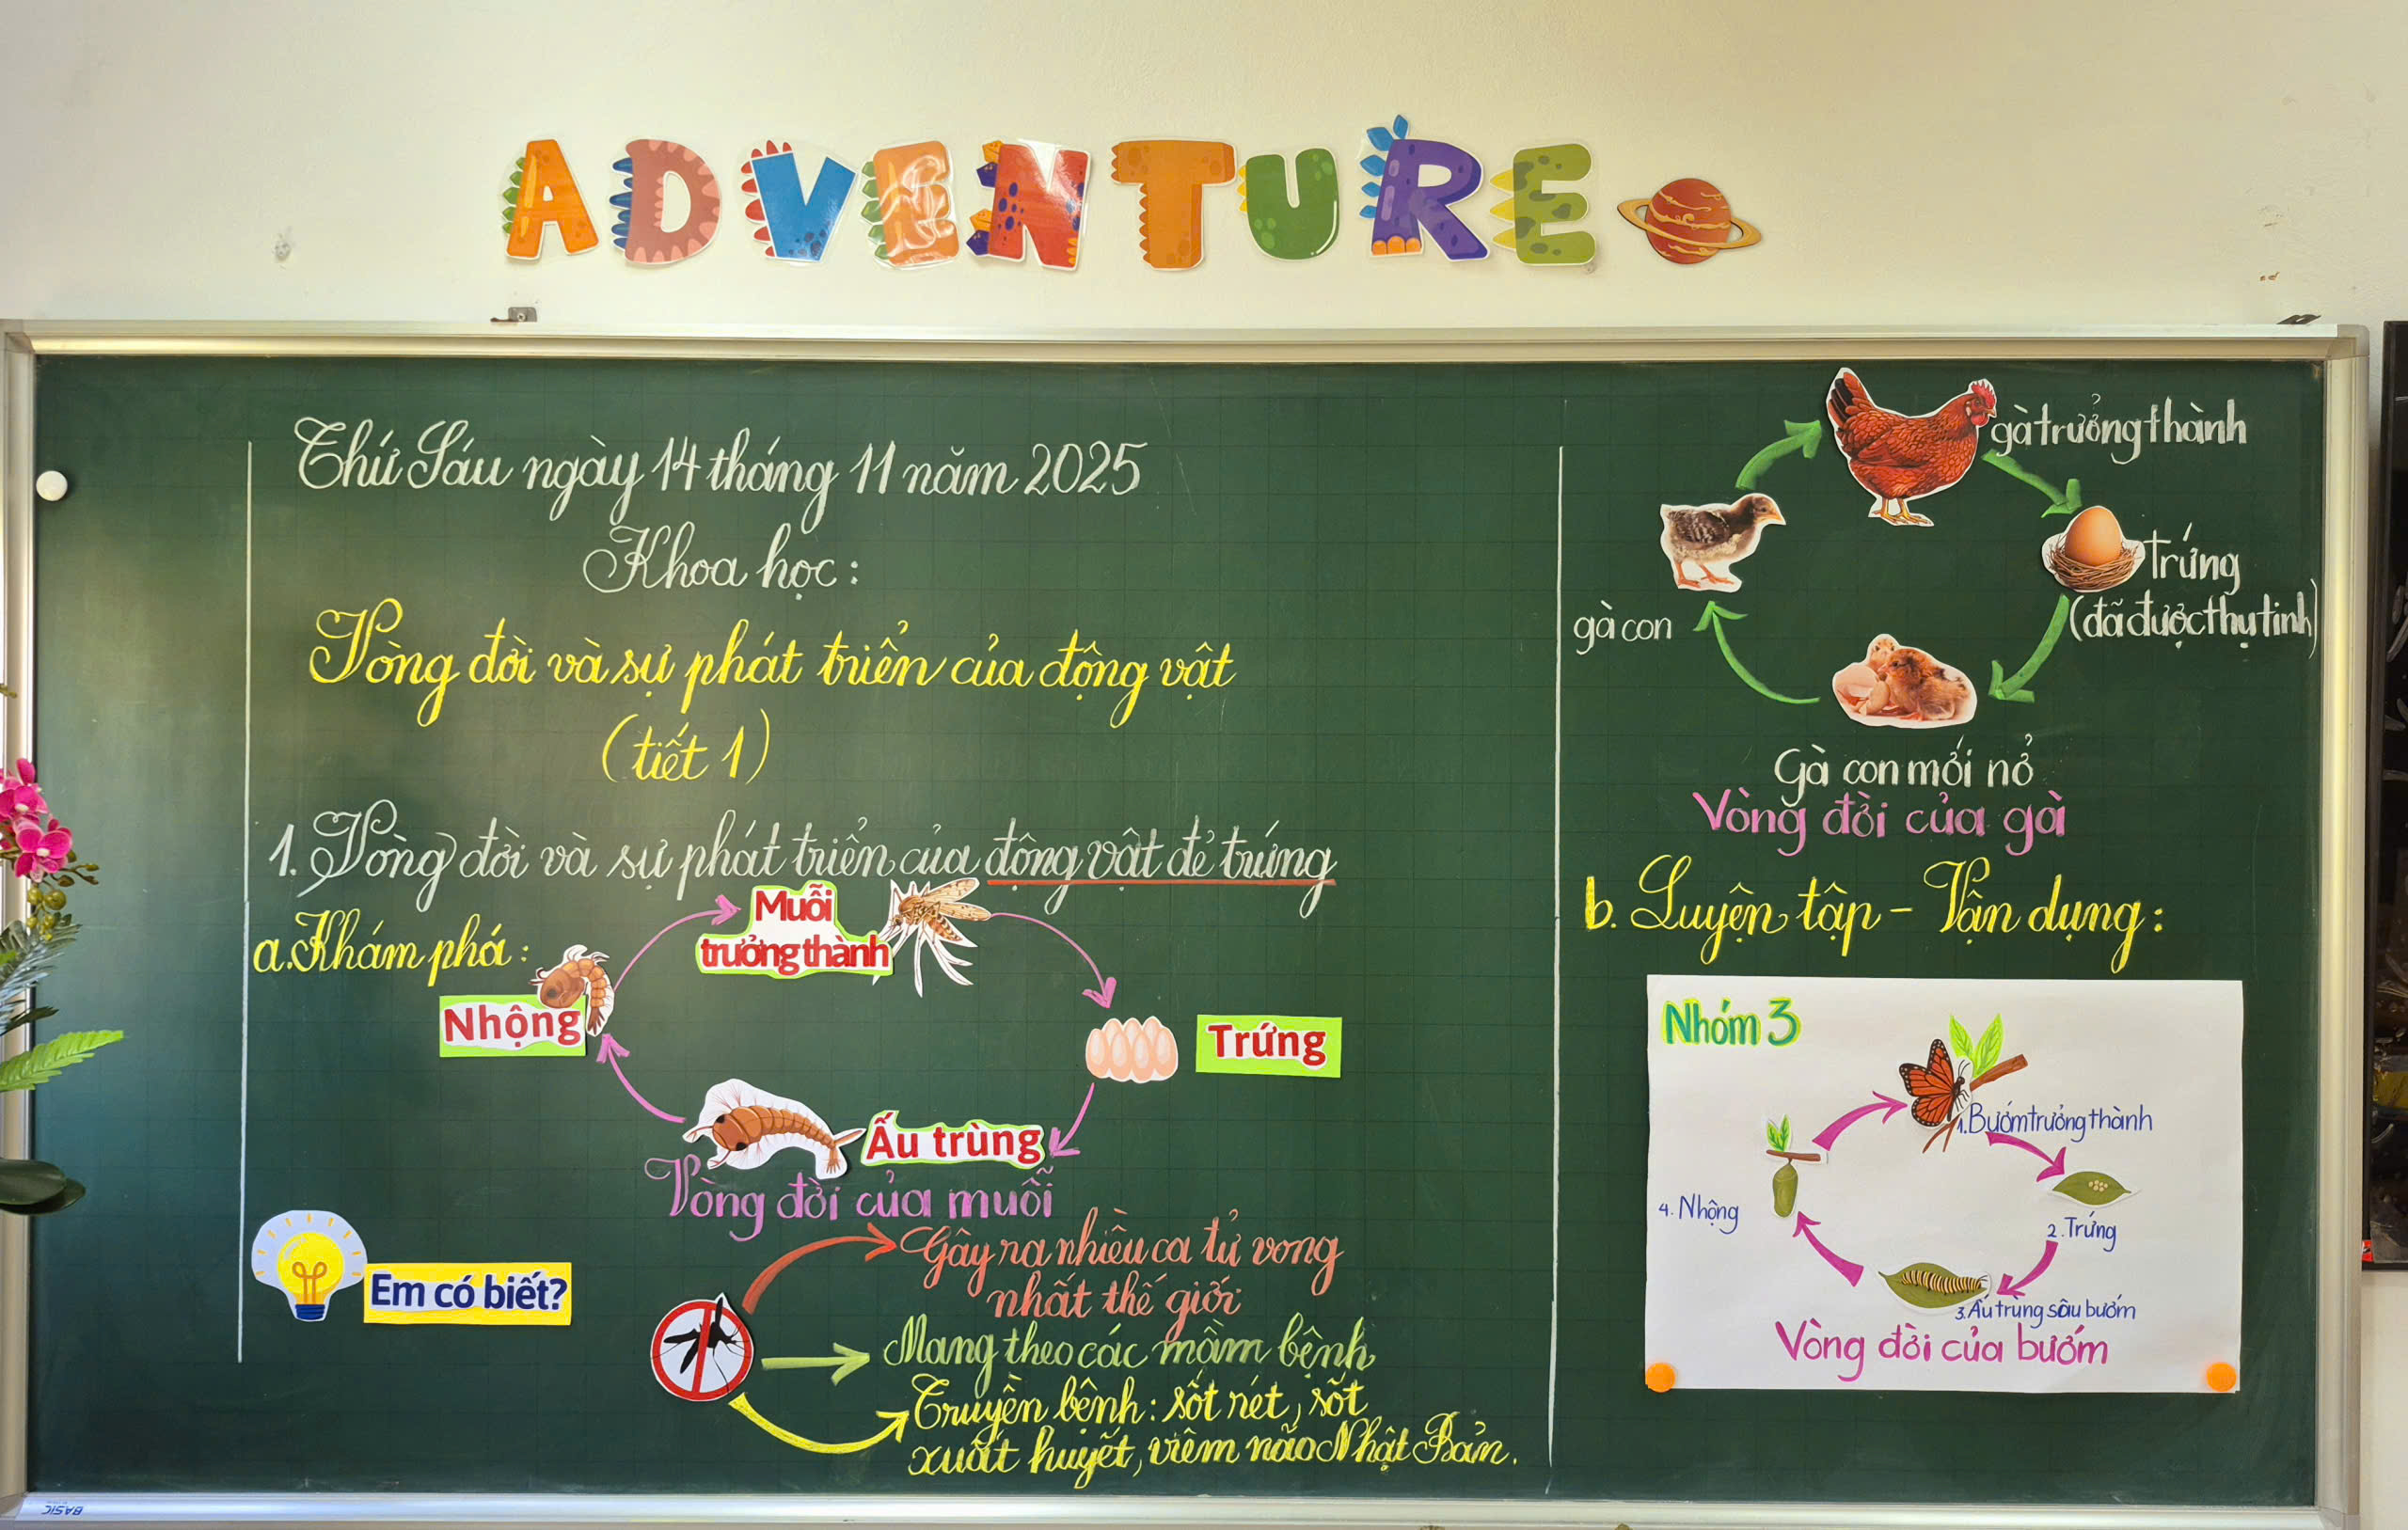 ADVENTURE
Thứ Sáu ngày 14 tháng 11 năm 2025
Khoa học:
Vòng đời và sự phát triển của động vật
(tiết 1)
1. Vòng đời và sự phát triển của động vật đẻ trứng
a. Khám phá:
Muỗi
trưởng thành
Nhộng
Trứng
Ấu trùng
Vòng đời của muỗi
Em có biết?
Gây ra nhiều ca tử vong
nhất thế giới
Mang theo các mầm bệnh
Truyền bệnh: sốt rét, sốt
xuất huyết, viêm não Nhật Bản.
gà trưởng thành
trứng
(đã được thụ tinh)
gà con
Gà con mới nở
Vòng đời của gà
b. Luyện tập - Vận dụng:
Nhóm 3
1. Bướm trưởng thành
4. Nhộng
2. Trứng
3. Ấu trùng sâu bướm
Vòng đời của bướm
BASIC